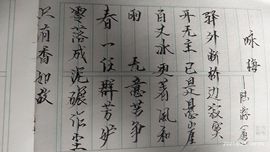 咏梅
陆游
驿外断桥边寂寞
开无主已是悬崖
百丈冰更著风和
雨 无意苦争
春一任群芳妒
零落成泥碾作尘
只有香如故